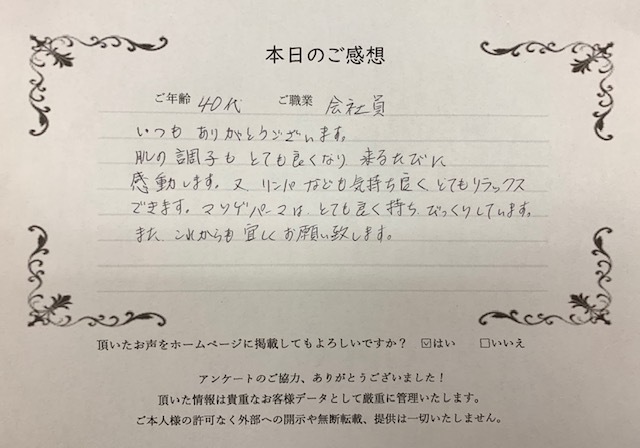 本日のご感想
ご年齢 40代 ご職業 会社員
いつも ありがとうございます。
肌の調子も とても良くなり 来るたびに
感動します。又、リンパ なども気持ち良く、とてもリラックス
できます。マツゲパーマは、とても良く持ち、びっくりしています。
また、これからも 宜しくお願い致します。
頂いたお声をホームページに掲載してもよろしいですか？ ☑はい □いいえ
アンケートのご協力、ありがとうございました！
頂いた情報は貴重なお客様データとして厳重に管理いたします。
ご本人様の許可なく外部への開示や無断転載、提供は一切いたしません。